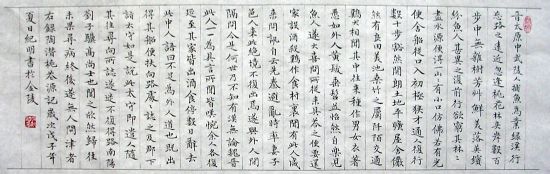 晉太原中武陵人捕魚為業緣溪行
忘路之遠近忽逢桃花林夾岸數百
步中無雜樹芳草鮮美落英繽
紛魚人甚異之復前行欲窮其林林
盡水源便得一山山有小口仿佛若有光
便舍船從口入初極狹才通人復行
數十步豁然開朗土地平曠屋舍儼
然有良田美池桑竹之屬阡陌交通
雞犬相聞其中往來種作男女衣著
悉如外人黃髮垂髫並怡然自樂見
魚人遂大驚問所從來具答之便要還
家設酒殺雞作食村裏聞有此人咸
來問訊自云先世避秦時亂率妻子
邑人來此絕境不復出焉遂與外人間
隔問今是何世乃不知有漢無論魏晉
此人一一為具言所聞皆嘆惋餘人各復
延至其家皆出酒食停數日辭去
此中人語曰不足為外人道也既出
得其船便扶向路處處誌之及郡下
詣太守如是說太守即遣人隨
其往尋向所誌遂迷不復得路南陽
劉子驥高尚士也聞之欣然歸往
未果尋病終後遂無人問津者
右録陶潛桃源記歲次戊子年
夏日紀明書於金陵